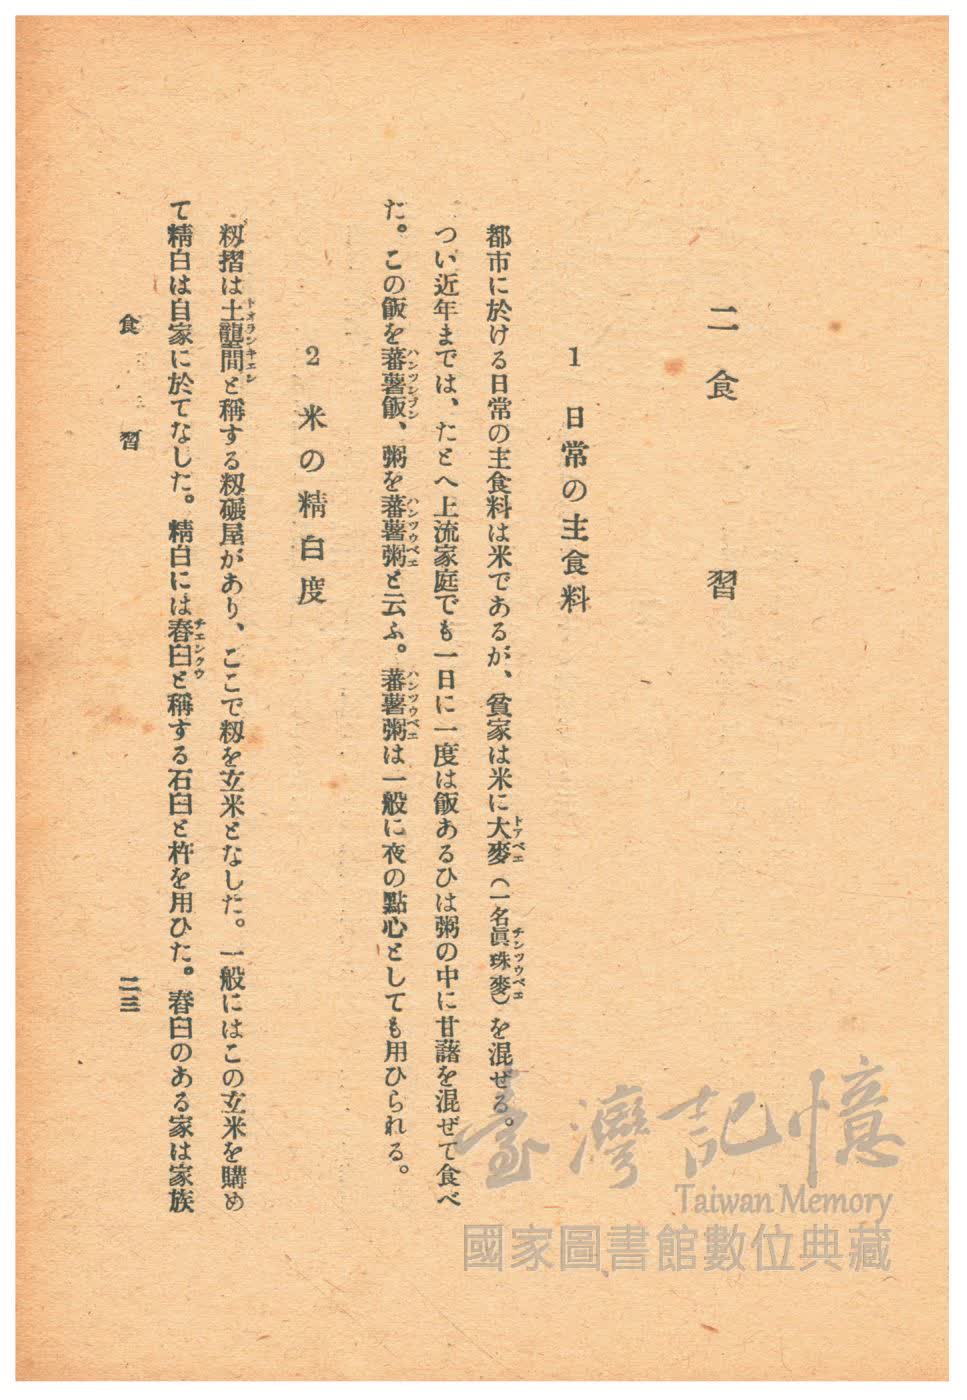 二 食習
1 日常の主食料
都市に於ける日常の主食料は米であるが、貧家は米に大麥(一名眞珠麥)を混ぜる。
トアベエ
チンツウベエ
つい近年までは、たとへ上流家庭でも一日に一度は飯あるひは粥の中に甘藷を混ぜて食べ
た。この飯を蕃薯飯、粥を蕃薯粥と云ふ。蕃薯粥は一般に夜の點心としても用ひられる。
ハンツンプン
ハンツウベエ
ハンツウベエ
2 米の精白度
籾摺は土壟間と稱する籾碾屋があり、ここで籾を玄米となした。一般にはこの玄米を購め
トオランキエン
て精白は自家に於てなした。精白には舂臼と稱する石臼と杵を用ひた。舂臼のある家は家族
チエンクウ
食習
二三
臺灣記憶
Taiwan Memory
國家圖書館數位典藏